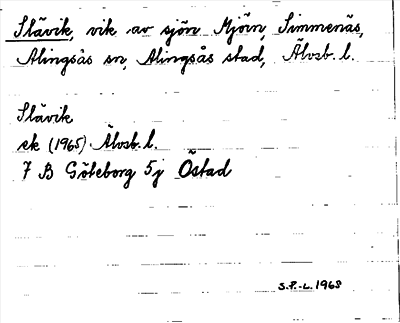 Slävik, vik av sjön Mjörn, Simmenäs,
Alingsås sn, Alingsås stad, Älvsb. l.
Slävik
ek (1965) Älvsb. l.
7 B Göteborg 5j Östad
S.P.-L. 1968